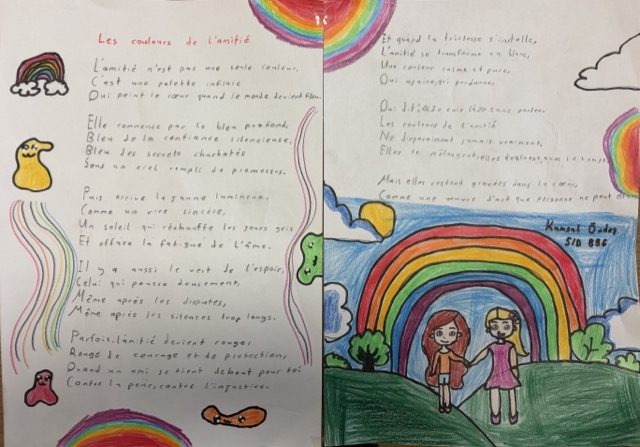 Les couleurs de l'amitié
L'amitié n'est pas une seule couleur,
C'est une palette infinie
Qui peint le cœur quand le monde devient
Elle commence par le bleu profond,
Bleu de la confiance silencieuse,
Bleu des secrets chuchotés
Sous un ciel rempli de promesses.
Puis arrive le jaune lumineux,
Comme un rire sincère,
Un soleil qui réchauffe les jours gris
Et efface la fatigue de l'âme.
Il y a aussi le vert de l'espoir,
Celui qui pousse doucement,
Même après les disputes,
Même après les silences trop longs.
Parfois, l'amitié devient rouge,
Rouge de courage et de protection,
Quand un ami se tient debout pour toi
Contre la peur, contre l'injustice.
Et quand la tristesse s'installe,
L'amitié se transforme en blanc,
Une couleur calme et pure,
Qui apaise, qui pardonne,
Qui dit sans parler.
Les couleurs de l'amitié
Ne disparaissent jamais vraiment,
Elles se mélangent, elles évoluent, avec le temps
Mais elles restent gravées dans le cœur,
Comme une œuvre d'art que personne ne peut